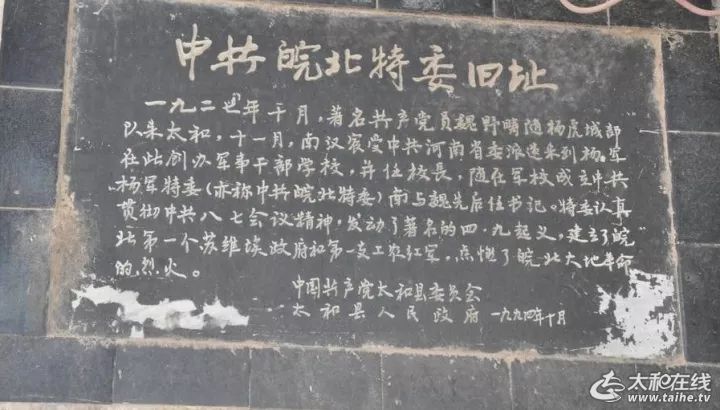 中共皖北特委旧址
一九二七年十月，著名共产党员魏野畴随杨虎城部
队来太和，十一月，南汉宸受中共河南省委派遣来到杨军
在此创办军事干部学校，并任校长，随在军校成立中共
杨军特委（亦称中共皖北特委）南与魏先后任书记。特委认真
贯彻中共八七会议精神，发动了著名的四·九起义，建立了皖
北第一个苏维埃政府和第一支工农红军，点燃了皖北大地革命
的烈火。
中国共产党太和县委员会
太和县人民政府 一九九四年十月
太和在线
www.taihe.tv